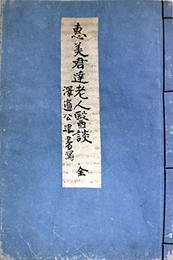 惠美君達老人醫談
澤邉公建書寫
全